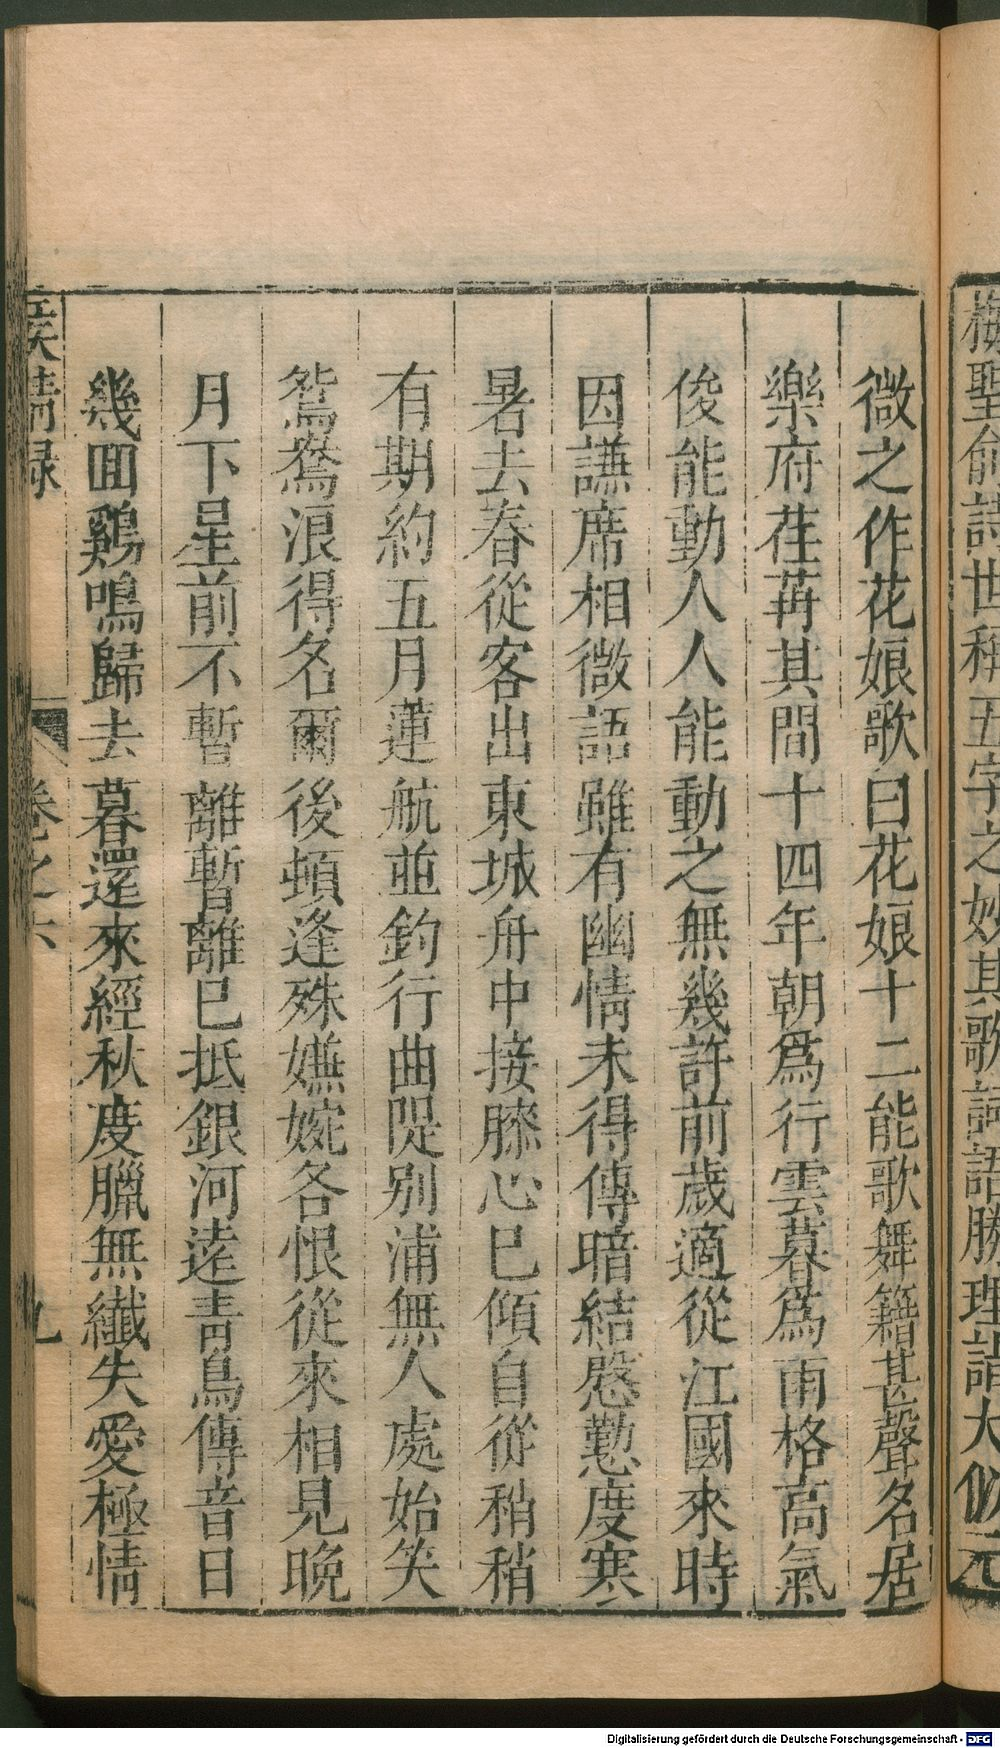 梅聖俞詩世稱五字之妙其歌詞語勝理詣大似元
微之作花娘歌曰花娘十二能歌舞籍甚聲名居
樂府荏苒其間十四年朝爲行雲暮爲雨格高氣
俊能動人人能動之無幾許前歲適從江國來時
因謙席相微語雖有幽情未得傳暗結慇懃度寒
暑去春從客出東城舟中接膝心巳傾自從稍稍
有期約五月蓮航並釣行曲隄別浦無人處始笑
鴛鴦浪得名爾後頓逢殊嬿婉各恨從來相見晚
月下星前不暫離暫離巳抵銀河遠青鳥傳音日
幾囬鷄鳴歸去暮還來經秋度臘無纖失愛極情
侯鯖録
卷之六
九
Digitalisierung gefördert durch die Deutsche Forschungsgemeinschaft - DFG